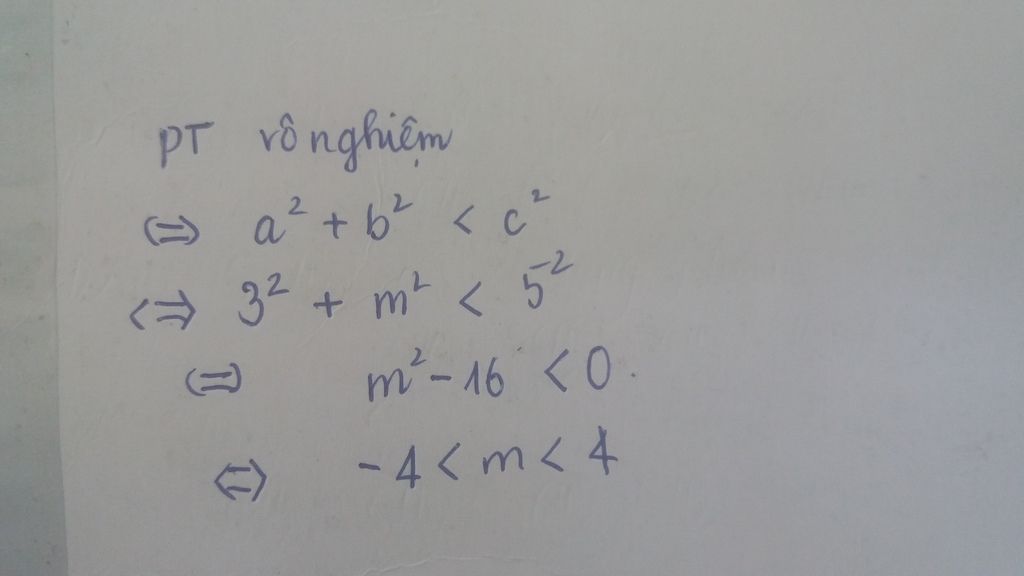 PT vô nghiệm
<=> a² + b² < c²
<=> 3² + m² < 5²
<=> m² - 16 < 0.
<=> -4 < m < 4